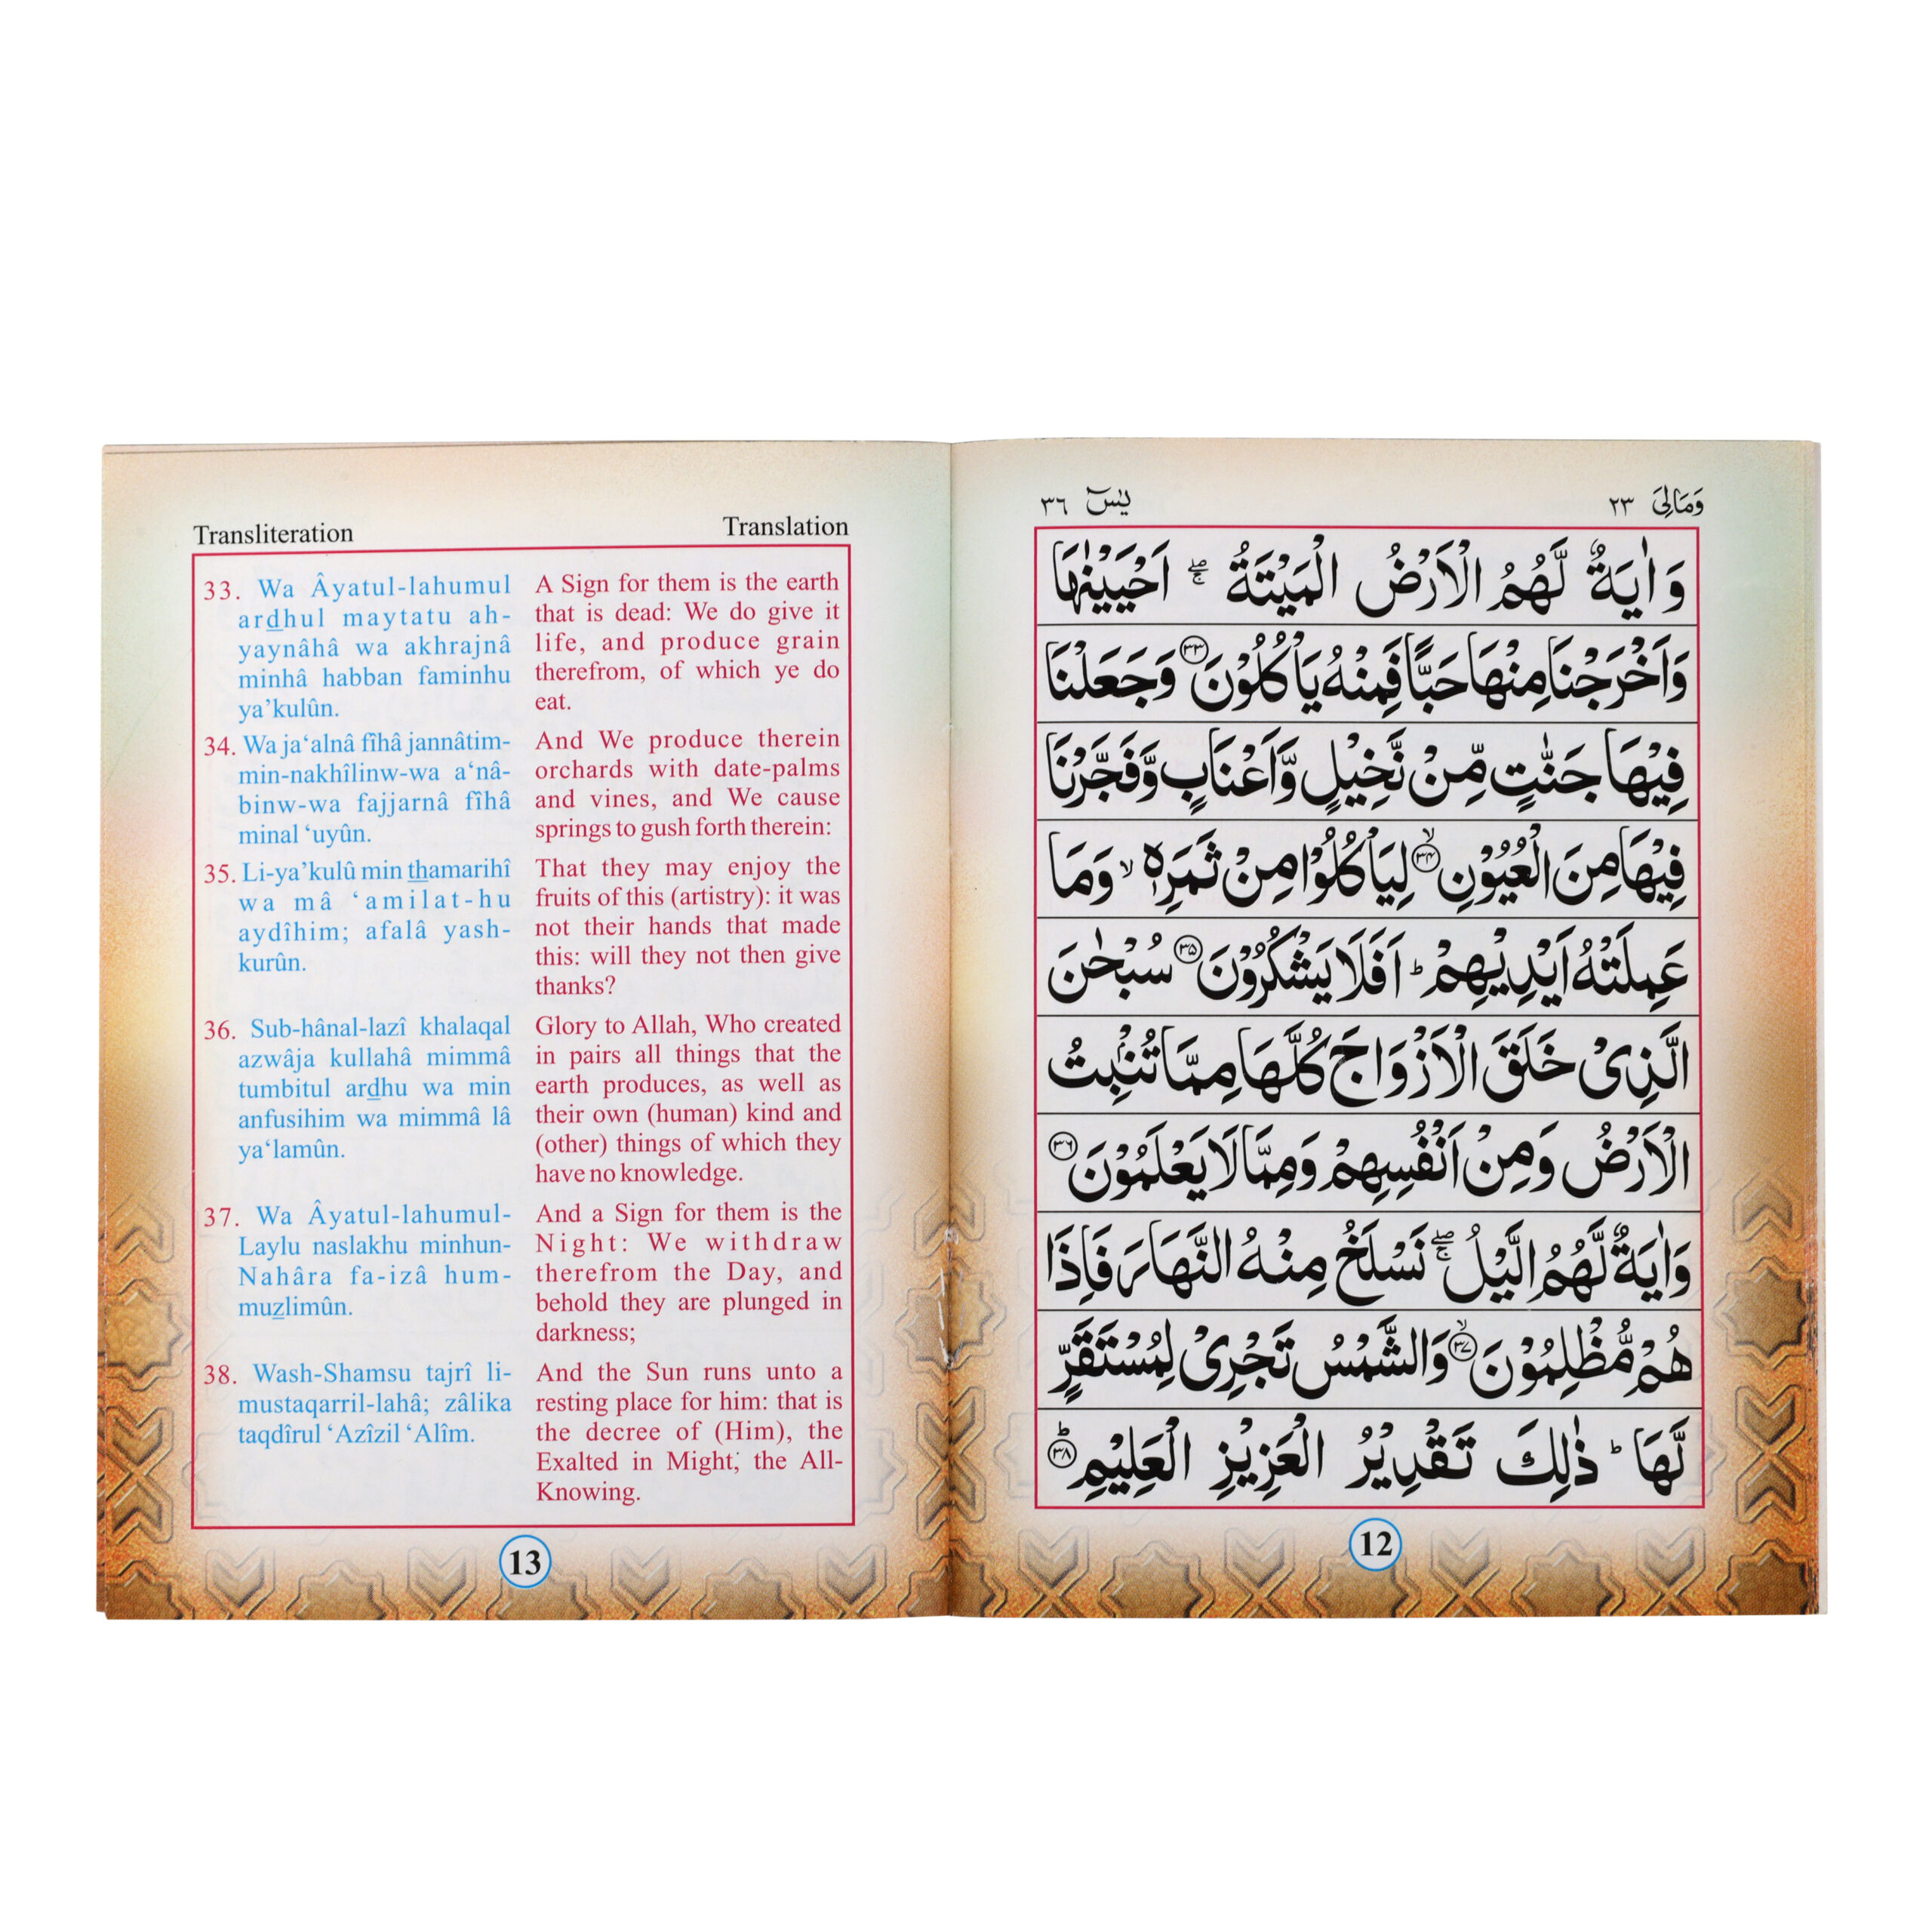 وَمَالِيَ ٢٣
يٰسٓ ٣٦
وَاٰيَةٌ لَّهُمُ الْاَرْضُ الْمَيْتَةُ ۚۖ اَحْيَيْنٰهَا
وَاَخْرَجْنَا مِنْهَا حَبًّا فَمِنْهُ يَاْكُلُوْنَ ﴿٣٣﴾ وَجَعَلْنَا
فِيْهَا جَنّٰتٍ مِّنْ نَّخِيْلٍ وَّاَعْنَابٍ وَّفَجَّرْنَا
فِيْهَا مِنَ الْعُيُوْنِ ﴿٣٤﴾ۙ لِيَاْكُلُوْا مِنْ ثَمَرِهٖ ۙ وَمَا
عَمِلَتْهُ اَيْدِيْهِمْ ؕ اَفَلَا يَشْكُرُوْنَ ﴿٣٥﴾ سُبْحٰنَ
الَّذِىْ خَلَقَ الْاَزْوَاجَ كُلَّهَا مِمَّا تُنْۢبِتُ
الْاَرْضُ وَمِنْ اَنْفُسِهِمْ وَمِمَّا لَا يَعْلَمُوْنَ ﴿٣٦﴾
وَاٰيَةٌ لَّهُمُ الَّيْلُ ۚۖ نَسْلَخُ مِنْهُ النَّهَارَ فَاِذَا
هُمْ مُّظْلِمُوْنَ ﴿٣٧﴾ۙ وَالشَّمْسُ تَجْرِىْ لِمُسْتَقَرٍّ
لَّهَا ؕ ذٰلِكَ تَقْدِيْرُ الْعَزِيْزِ الْعَلِيْمِ ﴿٣٨﴾ؕ
12
Transliteration
Translation
33. Wa Âyatul-lahumul
ardhul maytatu ah-
yaynâhâ wa akhrajnâ
minhâ habban faminhu
ya’kulûn.
A Sign for them is the earth
that is dead: We do give it
life, and produce grain
therefrom, of which ye do
eat.
34. Wa ja‘alnâ fîhâ jannâtim-
min-nakhîlinw-wa a‘nâ-
binw-wa fajjarnâ fîhâ
minal ‘uyûn.
And We produce therein
orchards with date-palms
and vines, and We cause
springs to gush forth therein:
35. Li-ya’kulû min thamarihî
wa mâ ‘amilat-hu
aydîhim; afalâ yash-
kurûn.
That they may enjoy the
fruits of this (artistry): it was
not their hands that made
this: will they not then give
thanks?
36. Sub-hânal-lazî khalaqal
azwâja kullahâ mimmâ
tumbitul ardhu wa min
anfusihim wa mimmâ lâ
ya‘lamûn.
Glory to Allah, Who created
in pairs all things that the
earth produces, as well as
their own (human) kind and
(other) things of which they
have no knowledge.
37. Wa Âyatul-lahumul-
Laylu naslakhu minhun-
Nahâra fa-izâ hum-
muzlimûn.
And a Sign for them is the
Night: We withdraw
therefrom the Day, and
behold they are plunged in
darkness;
38. Wash-Shamsu tajrî li-
mustaqarril-lahâ; zâlika
taqdîrul ‘Azîzil ‘Alîm.
And the Sun runs unto a
resting place for him: that is
the decree of (Him), the
Exalted in Might, the All-
Knowing.
13